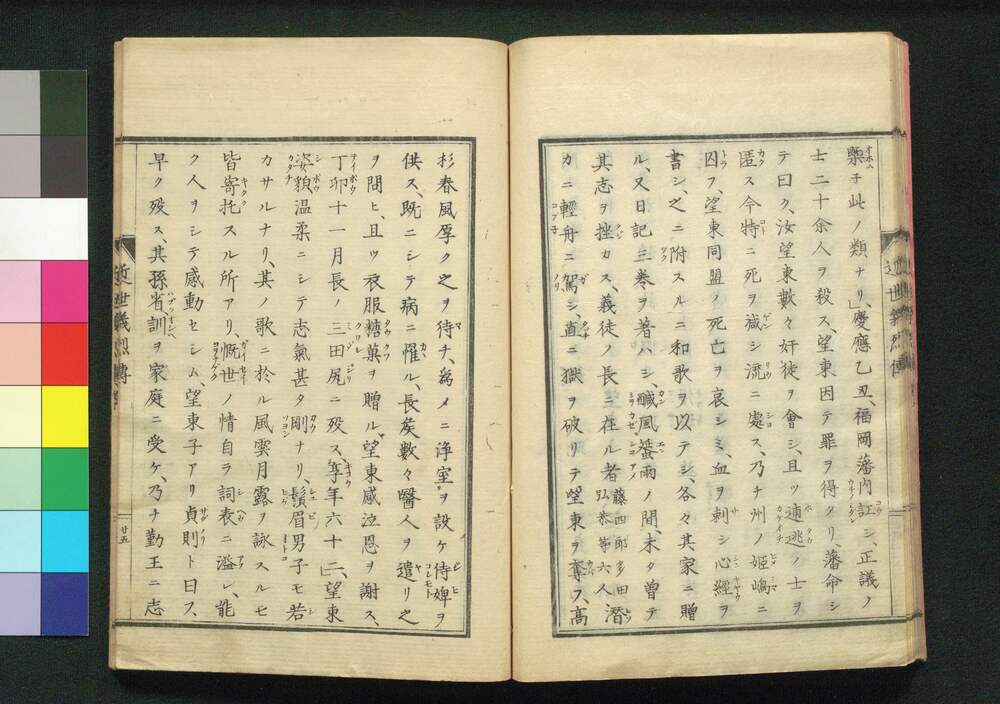 槩チ此ノ類ナリ、」慶應乙丑、福岡藩内訌シ、正議ノ
士二十余人ヲ殺ス、望東因テ罪ヲ得タリ、藩命シ
テ曰ク、汝望東數々奸徒ヲ會シ、且ツ逋逃ノ士ヲ
匿ス今特ニ死ヲ減シ流ニ處ス、乃チ州ノ姬嶋ニ
囚フ、望東同盟ノ死亡ヲ哀シミ、血ヲ刺シ心經ヲ
書シ、之ニ附スルニ和歌ヲ以テシ、各々其家ニ贈
ル、又日記三卷ヲ著ハシ、醎風蜑雨ノ間、未タ曽テ
其志ヲ挫カス、義徒ノ長ニ在ル者藤四郎多田弘恭等六人潛
カニ輕舟ニ駕シ、直ニ獄ヲ破リテ望東ヲ奪フ、高
杉春風厚ク之ヲ待チ、為メニ浄室ヲ設ケ侍婢ヲ
供ス、既ニシテ病ニ罹ル、長矦數々醫人ヲ遣リ之
ヲ問ヒ、且ツ衣服糖菓ヲ贈ル望東感泣恩ヲ謝ス、
丁卯十一月長ノ三田尻ニ歿ス、享年六十二、望東
姿貌温柔ニシテ志氣甚タ剛ナリ、鬚眉男子モ若
カサルナリ、其ノ歌ニ於ル風雲月露ヲ詠スルモ
皆寄托スル所アリ、慨世ノ情自ラ詞表ニ溢レ、能
ク人ヲシテ感動セシム、望東子アリ貞則ト曰フ、
早ク歿ス、其孫省、訓ヲ家庭ニ受ケ、乃チ勤王ニ志
近世義烈傳
廿五